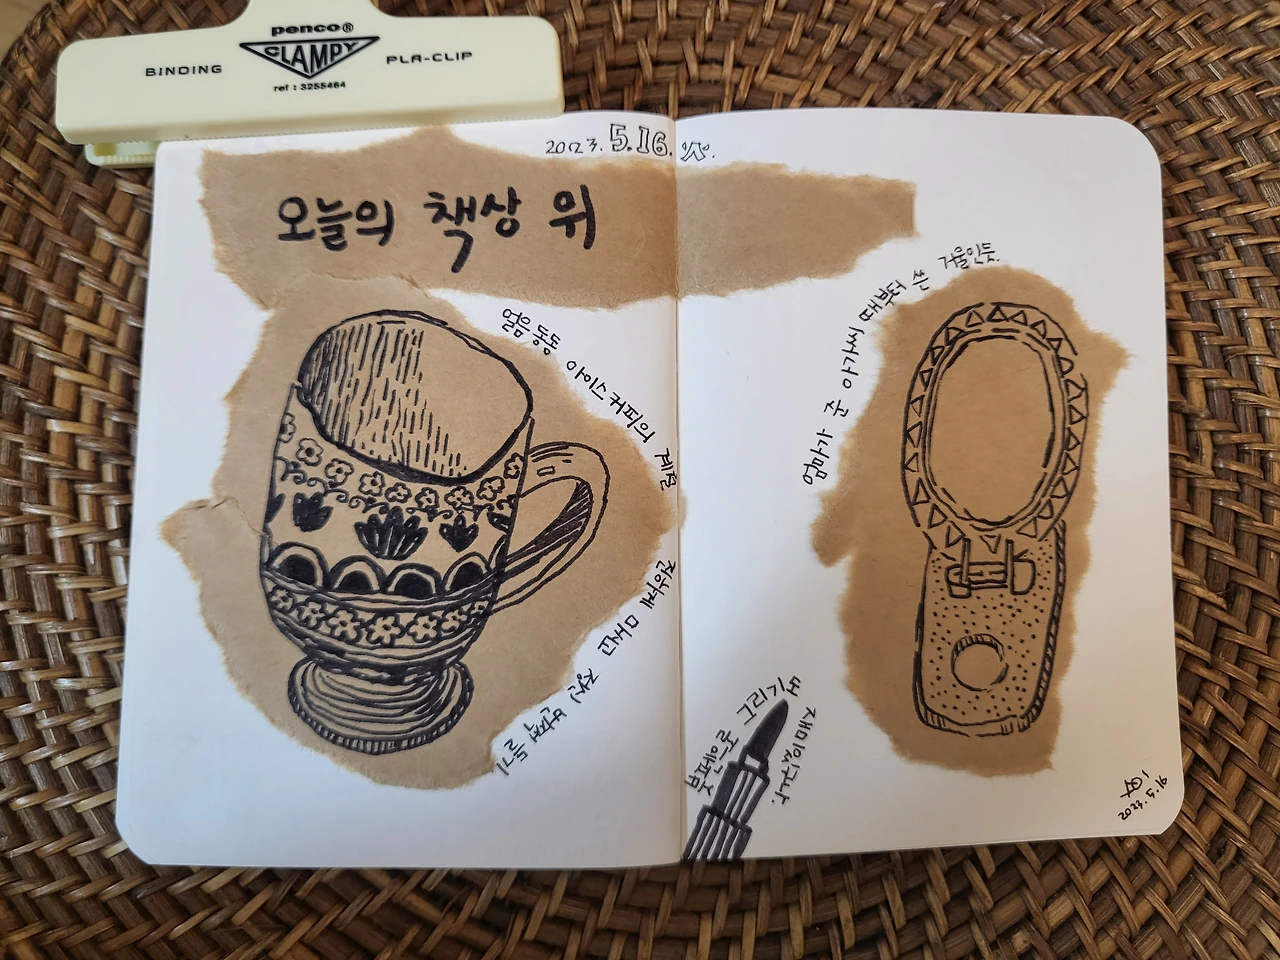 penco®
CLAMPY
BINDING
PLA-CLIP
ref : 3255464
2023. 5.16. 火.
오늘의 책상 위
얼음 동동 아이스커피의 계절
진하게
엄마가 준 아가씨 때부터 쓴 거울인듯.
그리기도
재미있구나.
2023.5.16